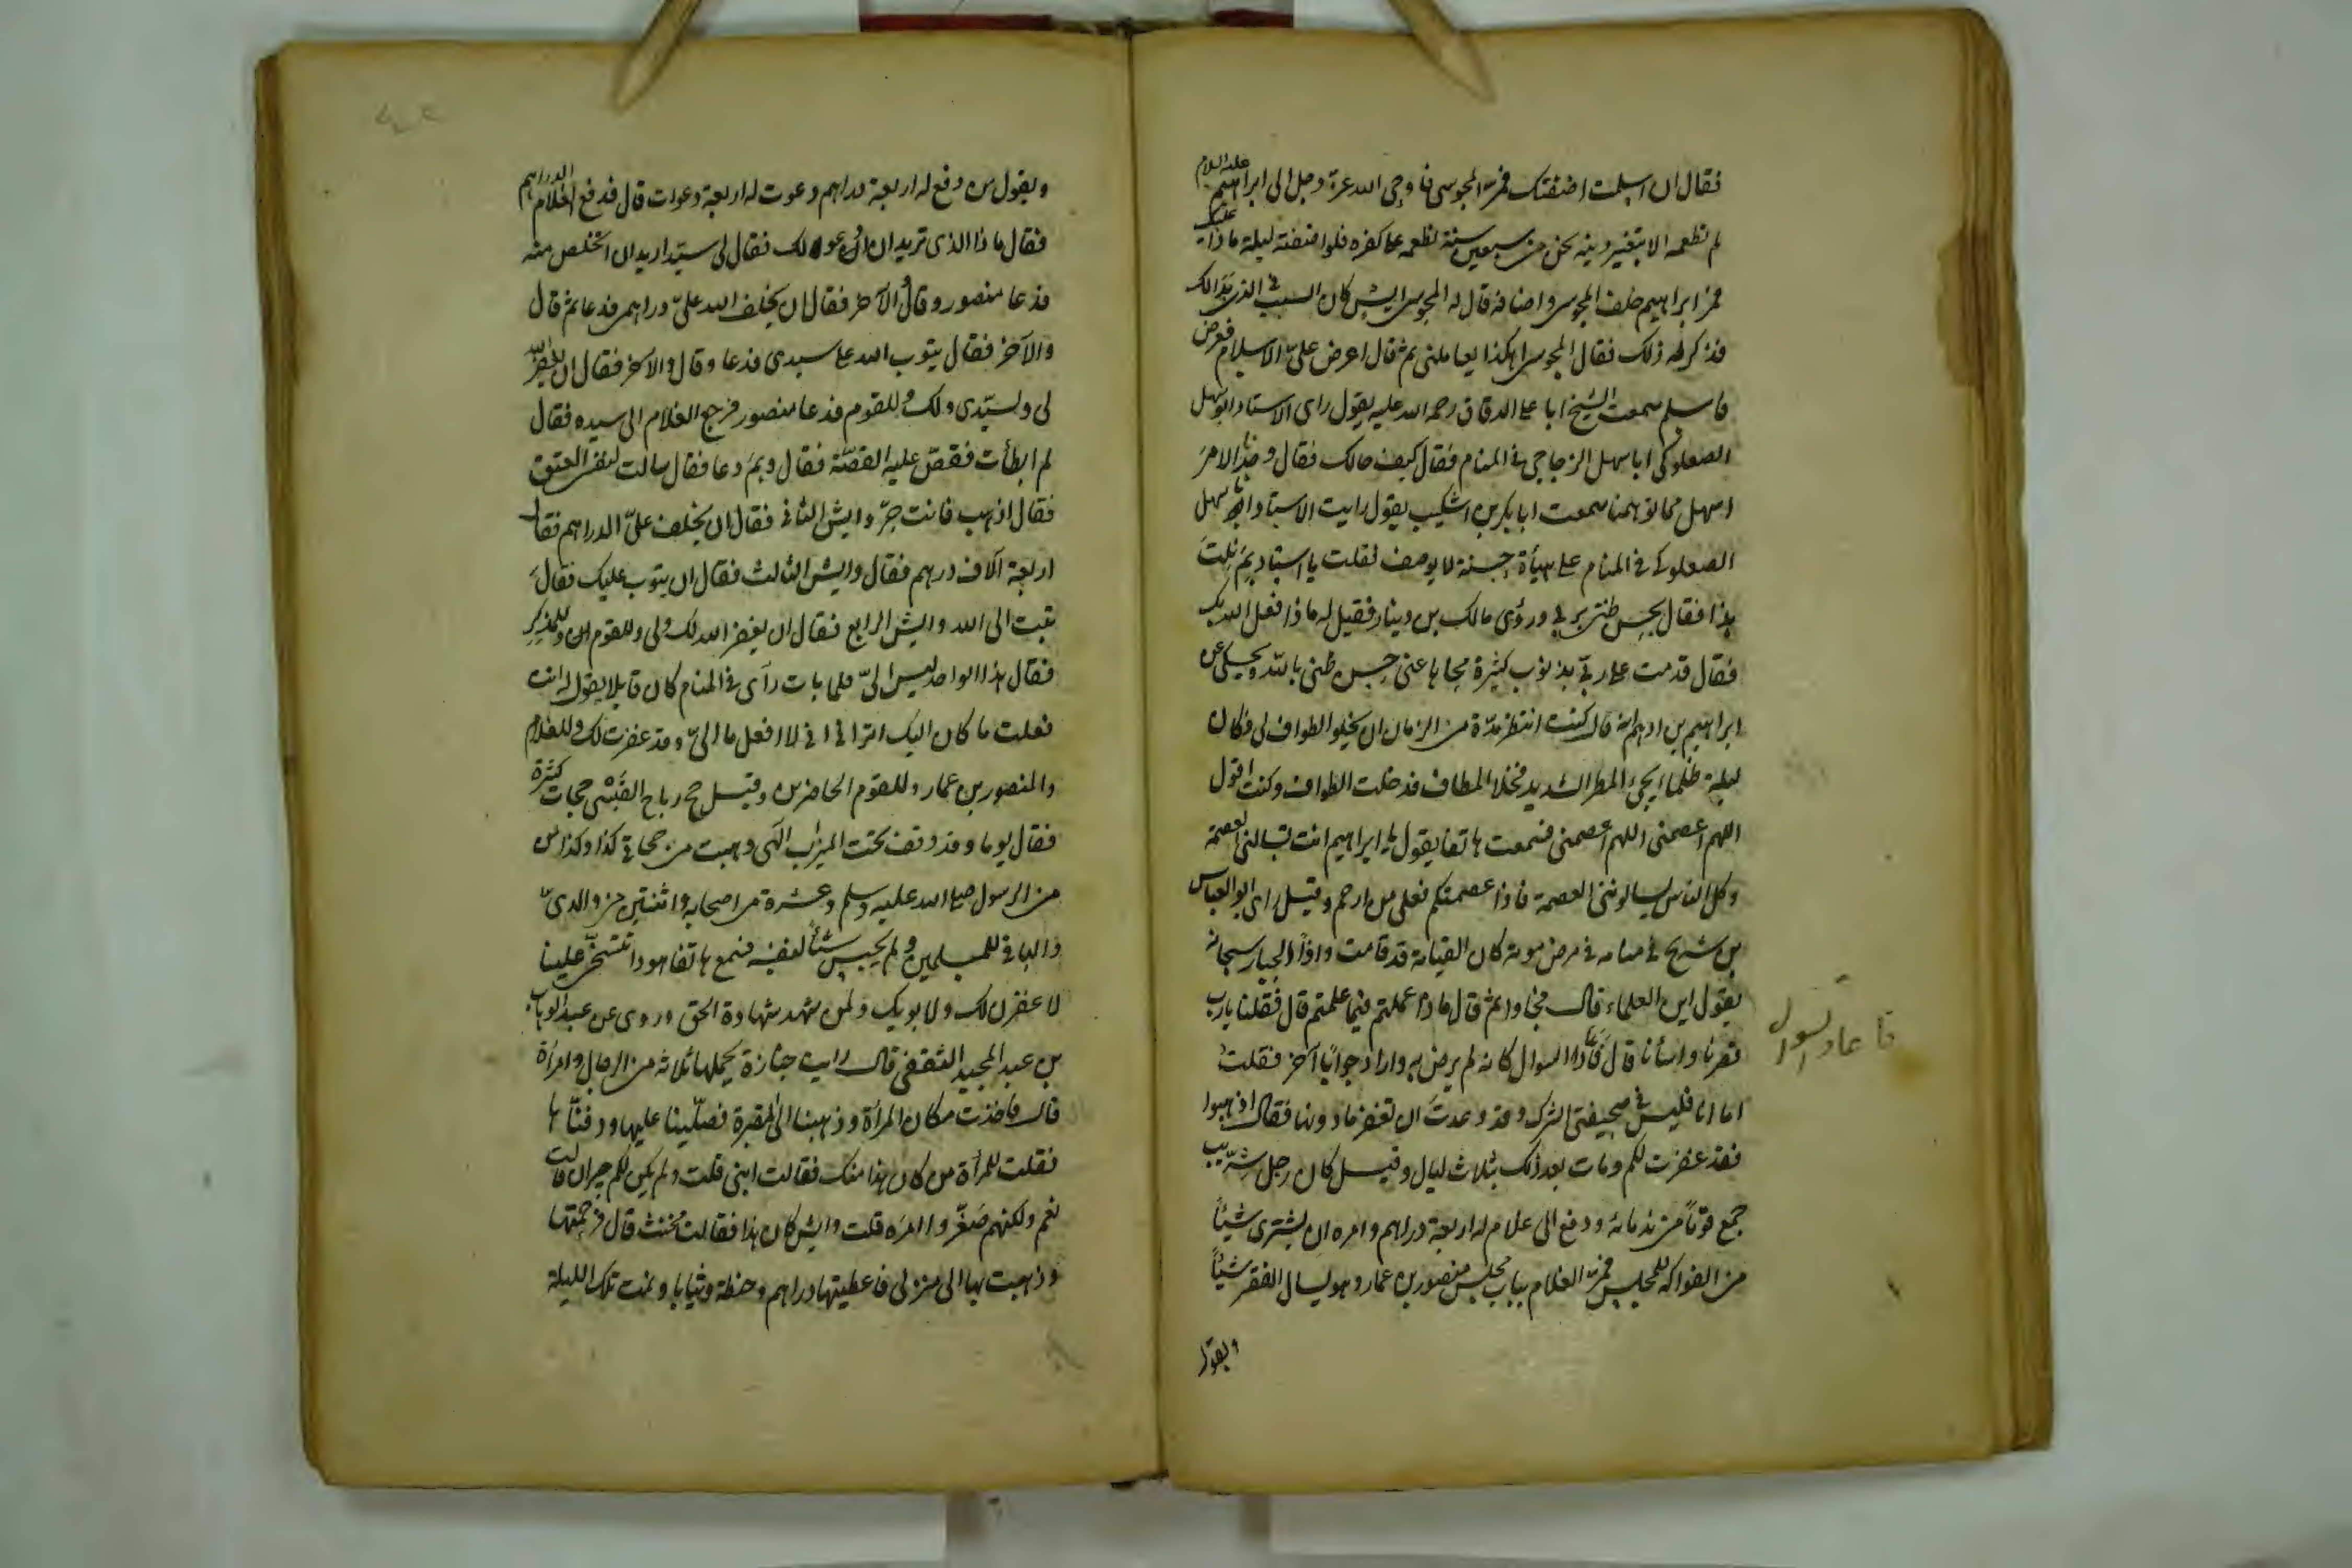 فقال ان اسلمت اضفتك فمر المجوسى فاوحى الله عزّ وجل الى ابراهيم عليه السلام
لم تطعمه الا بتغيير دينه نحن من سبعين سنة نطعمه على كفره فلو اضفته ليلة ماذا عليك
فمرّ ابراهيم خلف المجوسى واضافه قال له المجوسى ايش كان السبب فى الذى بدا لك
فذكر له ذلك فقال المجوسى اهكذا يعاملنى ثم قال اعرض علىّ الاسلام فعرض
فاسلم سمعت الشيخ ابا على الدقاق رحمه الله عليه يقول راى الاستاد ابو سهل
الصعلوكى ابا سهل الزجاجى فى المنام فقال كيف حالك فقال وجدنا الامر
اسهل مما توهمنا سمعت ابا بكر بن اشكيب يقول رايت الاستاد ابا سهل
الصعلوكى فى المنام على هيأة حسنة لا يوصف فقلت يا استاد بم نلت
هذا فقال بحسن ظنى بربى وروى مالك بن دينار فقيل له ماذا فعل الله بك
فقال قدمت على ربى بذنوب كثيرة محاها عنى حسن ظنى بالله ويحكى عن
ابراهيم بن ادهم انه قال كنت انتظر مدّة من الزمان ان يخلو الطواف لى فكان
ليلة ظلماء يجئ المطر الشديد فخلا المطاف فدخلت الطواف وكنت اقول
اللهم اعصمنى اللهم اعصمنى فسمعت هاتفا يقول يا ابراهيم انت تسالنى العصمة
وكل الناس يسالوننى العصمة فاذا عصمتكم فعلى من ارحم وقيل راى ابو العباس
بن شريح فى منامه فى مرض موته كان القيامة قد قامت واذا الجبار سبحانه
يقول اين العلماء قال فجاوا ثم قال ماذا عملتم فيما علمتم قال فقلنا يا رب
قصرنا واسأنا قال فاعاد السوال كانه لم يرض به واراد جوابًا آخر فقلت
اما انا فليس فى صحيفتى الشرك وقد وعدت ان تغفر ما دونها فقال اذهبوا
فقد غفرت لكم ومات بعد ذلك بثلاث ليال وقيل كان رجل شرّيب
جمع قومًا من ندمائه ودفع الى غلام له اربعة دراهم وامره ان يشترى شيئًا
من الفواكه للمجلس فمرّ الغلام بباب مجلس منصور بن عمار وهو يسال الفقير شيئًا
ويقول
فاعاد السوال
ويقول من دفع له اربعة دراهم دعوت له اربعة دعوات قال فدفع الغلام الدراهم
فقال ماذا الذى تريد ان ادعو لك فقال لى سيّد اريد ان اتخلص منه
فدعا منصور وقال الآخر فقال ان يخلف الله علىّ دراهمى فدعا ثم قال
والآخر فقال يتوب الله على سيدى فدعا وقال والآخر فقال ان يغفر الله
لى ولسيّدى ولك وللقوم فدعا منصور فرجع الغلام الى سيده فقال
لم ابطأت فقصّ عليه القصّة فقال وبم دعا فقال سالت لنفسى العتق
فقال اذهب فانت حرّ وايش الثانى فقال ان يخلف علىّ الدراهم فقال
اربعة آلاف درهم فقال وايش الثالث فقال ان يتوب عليك فقال
تبت الى الله وايش الرابع فقال ان يغفر الله لك ولى وللقوم وللمذكر
فقال هذا الواحد ليس الىّ فلما بات رآى فى المنام كان قايلا يقول له انت
فعلت ما كان اليك اترانى انى لا افعل ما الىّ وقد غفرت لك وللغلام
والمنصور بن عمار وللقوم الحاضرين وقيل حج رباح القيسى حجات كثيرة
فقال يوما وقد وقف تحت الميزاب الهى وهبت من حجاتى كذا وكذا
من الرسول صلى الله عليه وسلم وعشرة من اصحابه واثنتين من والدىّ
والباقى للمسلمين ولم يحبس شيئًا لنفسه فسمع هاتفا هوذا تتسخى علينا
لاغفرن لك ولابويك ولمن شهد شهادة الحق وروى عن عبد الوهاب
بن عبد المجيد الثقفى قال رايت جنازة يحملها ثلاثة من الرجال وامرأة
قال فاخذت مكان المرأة وذهبنا الى المقبرة فصلّينا عليها ودفنّاها
فقلت للمرأة من كان هذا منك فقالت ابنى قلت ولم يكن لكم جيران قالت
نعم ولكنهم صغّروا امره قلت وايش كان هذا فقالت مخنث قال فرحمتها
وذهبت بها الى منزلى فاعطيتها دراهم وحنطة وثيابا ونمت تلك الليلة